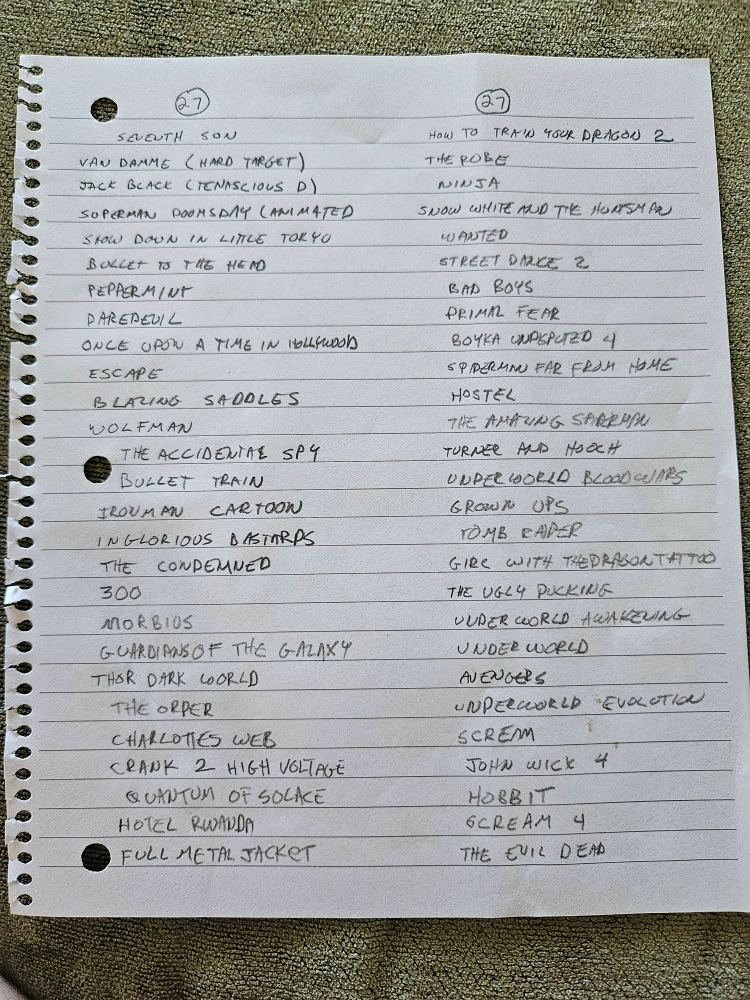 27
SEVENTH SON
VAN DAMME (HARD TARGET)
JACK BLACK (TENASCIOUS D)
SUPERMAN DOOMSDAY (ANIMATED
SHOW DOWN IN LITTLE TOKYO
BULLET TO THE HEAD
PEPPERMINT
DAREDEVIL
ONCE UPON A TIME IN HOLLYWOOD
ESCAPE
BLAZING SADDLES
WOLFMAN
THE ACCIDENTAL SPY
BULLET TRAIN
IRONMAN CARTOON
INGLORIOUS BASTARDS
THE CONDEMNED
300
MORBIUS
GUARDIANS OF THE GALAXY
THOR DARK WORLD
THE ORDER
CHARLOTTES WEB
CRANK 2 HIGH VOLTAGE
QUANTUM OF SOLACE
HOTEL RWANDA
FULL METAL JACKET
27
HOW TO TRAIN YOUR DRAGON 2
THE ROBE
NINJA
SNOW WHITE AND THE HUNTSMAN
WANTED
STREET DANCE 2
BAD BOYS
PRIMAL FEAR
BOYKA UNDISPUTED 4
SPIDERMAN FAR FROM HOME
HOSTEL
THE AMAZING SPIDERMAN
TURNER AND HOOCH
UNDERWORLD BLOODWARS
GROWN UPS
TOMB RADER
GIRL WITH THE DRAGON TATTOO
THE UGLY DUCKING
UNDERWORLD AWAKENING
UNDERWORLD
AVENGERS
UNDERWORLD EVOLUTION
SCREAM
JOHN WICK 4
HOBBIT
SCREAM 4
THE EVIL DEAD